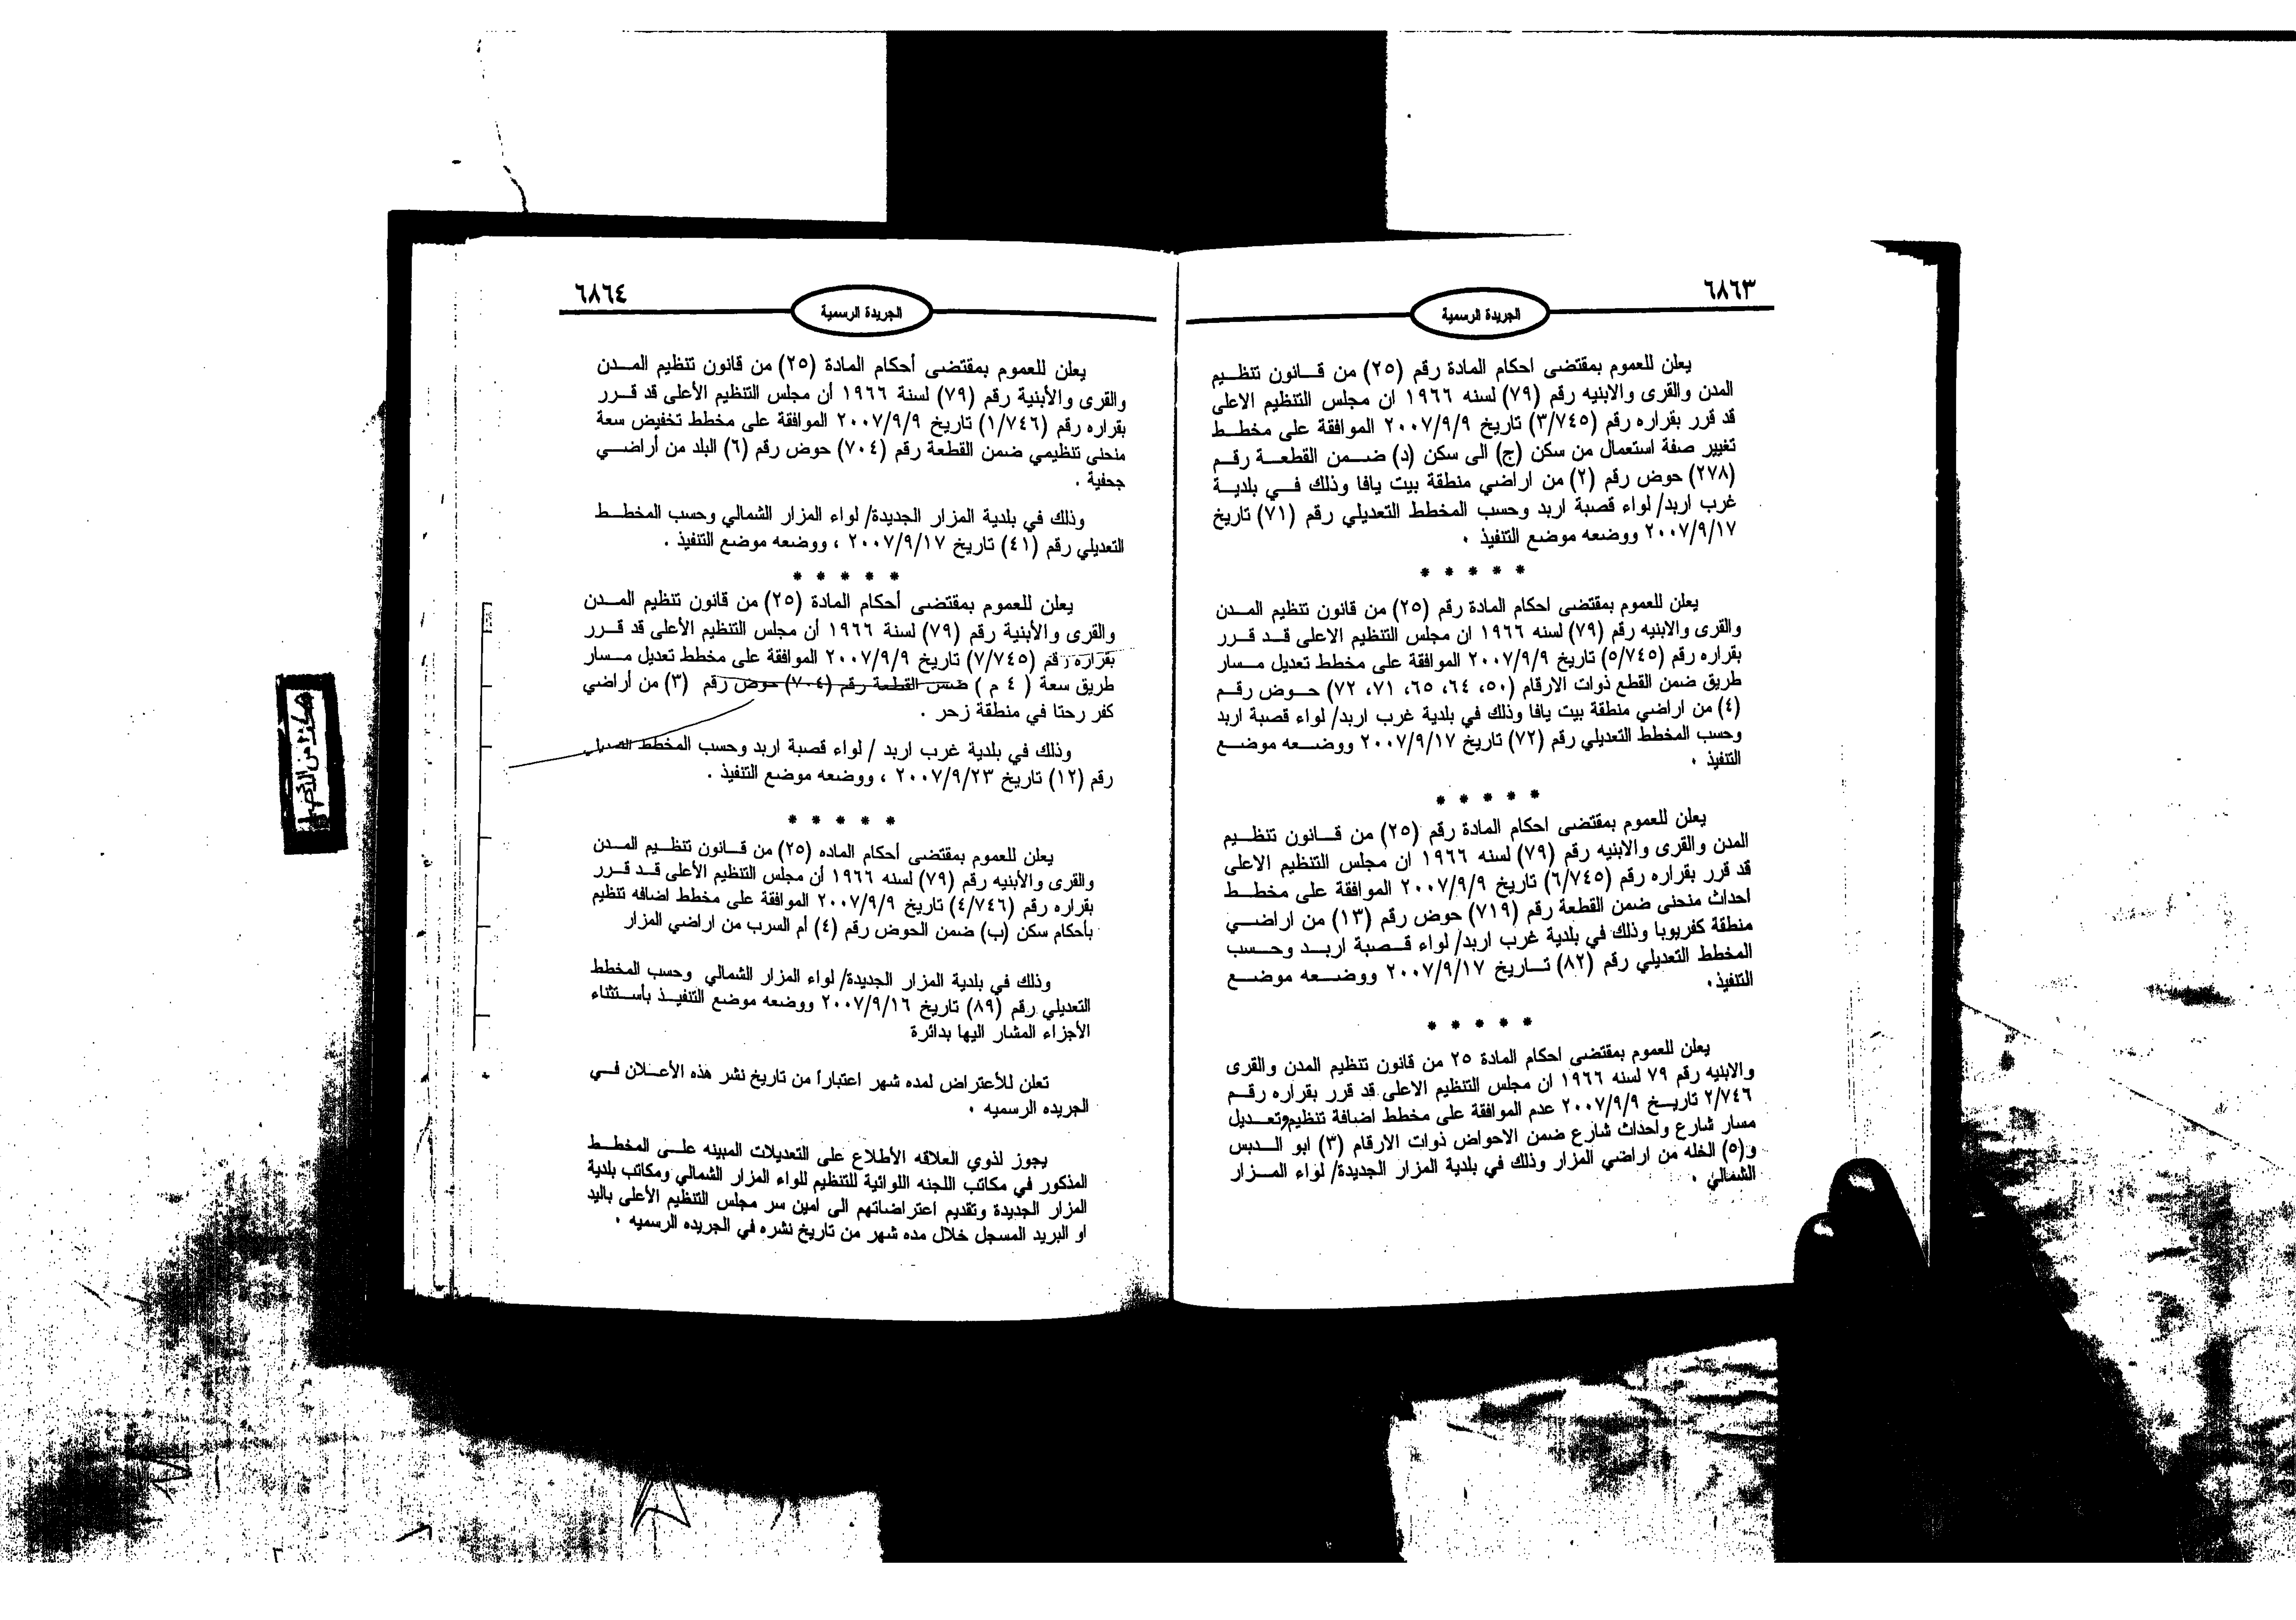 ٦٨٦٣
الجريدة الرسمية
يعلن للعموم بمقتضى احكام المادة رقم (٢٥) من قانون تنظيم
المدن والقرى والابنيه رقم (٧٩) لسنه ١٩٦٦ ان مجلس التنظيم الاعلى
قد قرر بقراره رقم (٣/٧٤٥) تاريخ ٢٠٠٧/٩/٩ الموافقة على مخطط
تغيير صفة استعمال من سكن (ج) الى سكن (د) ضمن القطعة رقم
(٢٧٨) حوض رقم (٢) من اراضي منطقة بيت يافا وذلك في بلدية
غرب اربد/ لواء قصبة اربد وحسب المخطط التعديلي رقم (٧١) تاريخ
٢٠٠٧/٩/١٧ ووضعه موضع التنفيذ .
* * * * *
يعلن للعموم بمقتضى احكام المادة رقم (٢٥) من قانون تنظيم المدن
والقرى والابنيه رقم (٧٩) لسنه ١٩٦٦ ان مجلس التنظيم الاعلى قد قرر
بقراره رقم (٥/٧٤٥) تاريخ ٢٠٠٧/٩/٩ الموافقة على مخطط تعديل مسار
طريق ضمن القطع ذوات الارقام (٥٠، ٦٤، ٦٥، ٧١، ٧٢) حوض رقم
(٤) من اراضي منطقة بيت يافا وذلك في بلدية غرب اربد/ لواء قصبة اربد
وحسب المخطط التعديلي رقم (٧٢) تاريخ ٢٠٠٧/٩/١٧ ووضعه موضع
التنفيذ .
* * * * *
يعلن للعموم بمقتضى احكام المادة رقم (٢٥) من قانون تنظيم
المدن والقرى والابنيه رقم (٧٩) لسنه ١٩٦٦ ان مجلس التنظيم الاعلى
قد قرر بقراره رقم (٦/٧٤٥) تاريخ ٢٠٠٧/٩/٩ الموافقة على مخطط
احداث منحنى ضمن القطعة رقم (٧١٩) حوض رقم (١٣) من اراضي
منطقة كفريوبا وذلك في بلدية غرب اربد/ لواء قصبة اربد وحسب
المخطط التعديلي رقم (٨٢) تاريخ ٢٠٠٧/٩/١٧ ووضعه موضع
التنفيذ.
* * * * *
يعلن للعموم بمقتضى احكام المادة ٢٥ من قانون تنظيم المدن والقرى
والابنيه رقم ٧٩ لسنه ١٩٦٦ ان مجلس التنظيم الاعلى قد قرر بقراره رقم
٢/٧٤٦ تاريخ ٢٠٠٧/٩/٩ عدم الموافقة على مخطط اضافة تنظيم وتعديل
مسار شارع واحداث شارع ضمن الاحواض ذوات الارقام (٣) ابو الدبس
و(٥) الخله من اراضي المزار وذلك في بلدية المزار الجديدة/ لواء المزار
الشمالي .
٦٨٦٤
الجريدة الرسمية
يعلن للعموم بمقتضى أحكام المادة (٢٥) من قانون تنظيم المدن
والقرى والأبنية رقم (٧٩) لسنة ١٩٦٦ أن مجلس التنظيم الأعلى قد قرر
بقراره رقم (١/٧٤٦) تاريخ ٢٠٠٧/٩/٩ الموافقة على مخطط تخفيض سعة
منحنى تنظيمي ضمن القطعة رقم (٧٠٤) حوض رقم (٦) البلد من أراضي
جحفية .
وذلك في بلدية المزار الجديدة/ لواء المزار الشمالي وحسب المخطط
التعديلي رقم (٤١) تاريخ ٢٠٠٧/٩/١٧ ، ووضعه موضع التنفيذ .
* * * * *
يعلن للعموم بمقتضى أحكام المادة (٢٥) من قانون تنظيم المدن
والقرى والأبنية رقم (٧٩) لسنة ١٩٦٦ أن مجلس التنظيم الأعلى قد قرر
بقراره رقم (٧/٧٤٥) تاريخ ٢٠٠٧/٩/٩ الموافقة على مخطط تعديل مسار
طريق سعة ( ٤ م ) ضمن القطعة رقم (٧٠٤) حوض رقم (٣) من أراضي
كفر رحتا في منطقة زحر .
وذلك في بلدية غرب اربد / لواء قصبة اربد وحسب المخطط التعديلي
رقم (١٢) تاريخ ٢٠٠٧/٩/٢٣ ، ووضعه موضع التنفيذ .
* * * * *
يعلن للعموم بمقتضى أحكام الماده (٢٥) من قانون تنظيم المدن
والقرى والأبنيه رقم (٧٩) لسنه ١٩٦٦ أن مجلس التنظيم الأعلى قد قرر
بقراره رقم (٤/٧٤٦) تاريخ ٢٠٠٧/٩/٩ الموافقة على مخطط اضافه تنظيم
بأحكام سكن (ب) ضمن الحوض رقم (٤) أم السرب من اراضي المزار
وذلك في بلدية المزار الجديدة/ لواء المزار الشمالي وحسب المخطط
التعديلي رقم (٨٩) تاريخ ٢٠٠٧/٩/١٦ ووضعه موضع التنفيذ بأستثناء
الأجزاء المشار اليها بدائرة
تعلن للأعتراض لمده شهر اعتباراً من تاريخ نشر هذه الأعلان في
الجريده الرسميه .
يجوز لذوي العلاقه الأطلاع على التعديلات المبينه على المخطط
المذكور في مكاتب اللجنه اللوائية للتنظيم للواء المزار الشمالي ومكاتب بلدية
المزار الجديدة وتقديم اعتراضاتهم الى امين سر مجلس التنظيم الأعلى باليد
او البريد المسجل خلال مده شهر من تاريخ نشره في الجريده الرسميه .